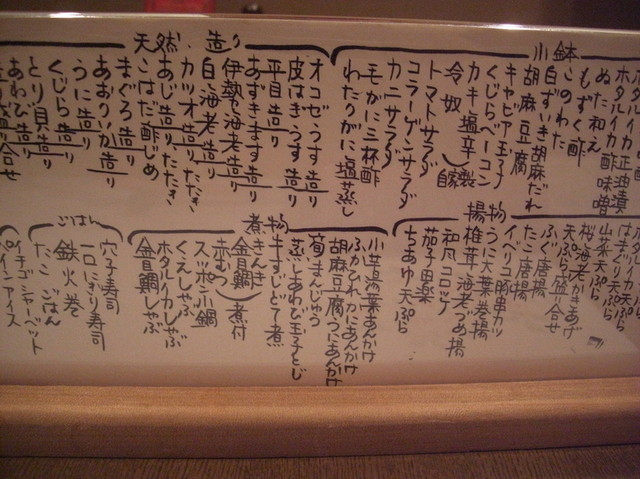 小鉢
ホタルイカ正油漬
ホタルイカ酢味噌
ぬた和え
もずく酢
このわた
白ずいき胡麻だれ
胡麻豆腐
キャビア玉子
くじらベーコン
カキ塩辛(自家製)
冷奴
トマトサラダ
コラーゲンサラダ
カニサラダ
毛がに三杯酢
わたりがに塩蒸し
天然造り
オコゼうす造り
皮はぎうす造り
平目造り
あずきます造り
伊勢海老造り
白海老造り
カツオ造り・たたき
あじ造り・たたき
こはだ酢じめ
まぐろ造り
あおりいか造り
うに造り
くじら造り
とり貝造り
あわび造り
造り盛り合せ
揚物
はまぐり天ぷら
山菜天ぷら
桜海老かきあげ
天ぷら盛り合せ
ふぐ唐揚
たこ唐揚
イベリコ豚串カツ
うに大葉巻揚
椎茸海老づめ揚
和風コロッケ
茄子田楽
ちあゆ天ぷら
煮物
小芋湯葉あんかけ
ふかひれかにあんかけ
胡麻豆腐うにあんかけ
筍まんじゅう
蒸しあわび玉子とじ
牛すじとて煮
きんき
金目鯛
赤むつ
煮付
スッポン小鍋
くえしゃぶ
ホタルイカしゃぶ
金目鯛しゃぶ
ごはん
穴子寿司
一口にぎり寿司
鉄火巻
たこごはん
イチゴシャーベット
パインアイス